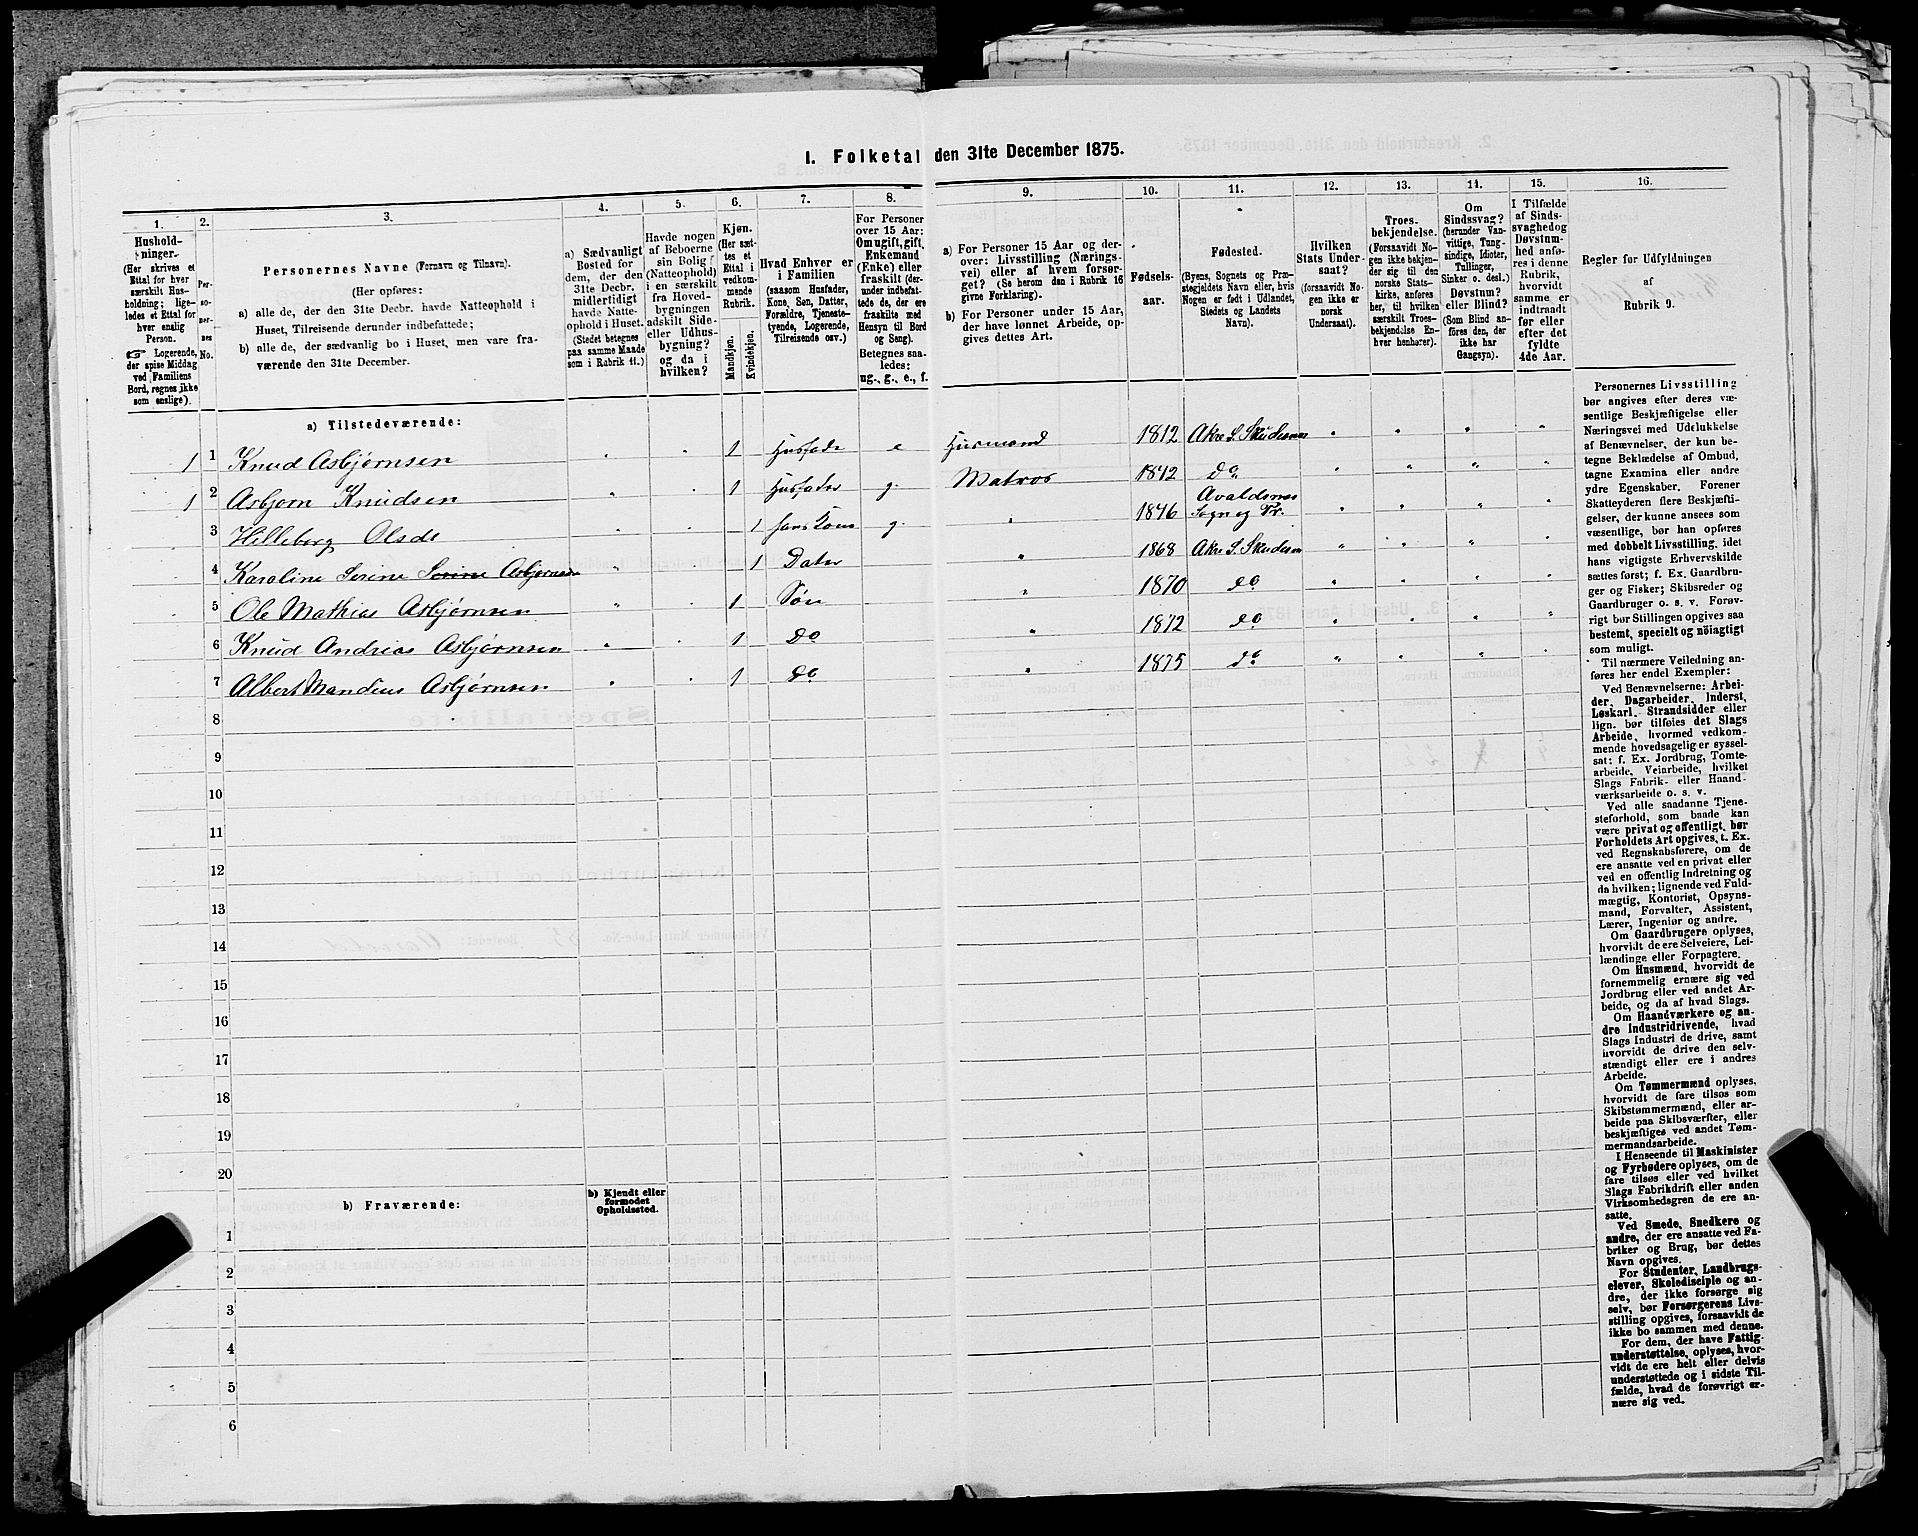 1. Folketal den 31te December 1875.
1.
2.
3.
4.
5.
6.
7.
8.
9.
10.
11.
12.
13.
14.
15.
16.
Hushold-
ninger.
(Her skrives et
Ettal for hver
særskilt Hus-
holdning; lige-
ledes et Ettal for
hver enslig
Person.
☞ Logerende,
der spise Middag
ved Familiens
Bord, regnes ikke
som enslige).
Per-
so-
ner-
nes
No.
Personernes Navne (Fornavn og Tilnavn).
(Her opføres:
a) alle de, der den 31te Decbr. havde Natteophold i
Huset, Tilreisende derunder indbefattede;
b) alle de, der sædvanlig bo i Huset, men vare fra-
værende den 31te December.
a) Sædvanligt
Bosted for
dem, der den
31te Decbr.
midlertidigt
havde Natte-
ophold i Huset.
(Stedet betegnes
paa samme Maade
som i Rubrik 11.)
Havde nogen
af Beboerne
sin Bolig
(Natteophold)
i en særskilt
fra Hoved-
bygningen
adskilt Side-
eller Udhus-
bygning?
og da i
hvilken?
Kjøn.
(Her sæt-
tes et
Ettal i
vedkom-
mende
Rubrik.
Mandkjøn.
Kvindekjøn.
Hvad Enhver er
i Familien
(saasom Husfader,
Kone, Søn, Datter,
Forældre, Tjeneste-
tyende, Logerende,
Tilreisende osv.)
For Personer
over 15 Aar:
Om ugift, gift,
Enkemand
(Enke) eller
fraskilt (der-
under indbefat-
tede de, der ere
fraskilte med
Hensyn til Bord
og Seng).
Betegnes saa-
ledes:
ug., g., e., f.
a) For Personer 15 Aar og der-
over: Livsstilling (Nærings-
vei) eller af hvem forsør-
get? (Se herom den i Rubrik 16
givne Forklaring).
b) For Personer under 15 Aar,
der have lønnet Arbeide, op-
gives dettes Art.
Fødsels-
aar.
Fødested.
(Byens, Sognets og Præ-
stegjeldets Navn eller, hvis
Nogen er født i Udlandet,
Stedets og Landets
Navn).
Hvilken
Stats Under-
saat?
(forsaavidt No-
gen ikke er
norsk
Undersaat).
Troes-
bekjendelse.
(Forsaavidt No-
gen ikke bekjen-
der sig til den
norske Stats-
kirke, anføres
her, til hvilken
særskilt Troes-
bekjendelse En-
hver henhører).
Om
Sindssvag?
(herunder Van-
vittige, Tung-
sindige, Idioter,
Tullinger,
Sinker o. desl.)
Døvstum?
eller Blind?
(Som Blind an-
føres den, der
ikke har
Gangsyn).
I Tilfælde
af Sinds-
svaghed og
Døvstum-
hed anfø-
res i denne
Rubrik,
hvorvidt
samme er
indtraadt
før eller
efter det
fyldte
4de Aar.
Regler for Udfyldningen
af
Rubrik 9.
a) Tilstedeværende:
1 1 Knud Asbjørnsen " " 1 Husfader e Husmand 1812 Akre S. Skudesnes " " " "
1 2 Asbjørn Knudsen " " 1 Husfader g. Matros 1842 Do " " " "
3 Hilleborg Olsdt " " 1 hans Kone g. " 1846 Avaldsnes Sogn og Pr. " " " "
4 Karoline Serine Serine Asbjørnsen " " 1 Dater " 1868 Akre S. Skudesn " " " "
5 Ole Mathias Asbjørnsen " " 1 Søn " 1870 do " " " "
6 Knud Andreas Asbjørnsen " " 1 Do " 1872 do " " " "
7 Albert Mandius Asbjørnsen " " 1 do " 1875 do " " " "
8
9
10
11
12
13
14
15
16
17
18
19
20
b) Fraværende:
b) Kjendt eller
formodet
Opholdssted.
1
2
3
4
5
6
Personernes Livsstilling
bør angives efter deres væ-
sentlige Beskjæftigelse eller
Næringsvei med Udelukkelse
af Benævnelser, der kun be-
tegne Beklædelse af Ombud,
tagne Examina eller andre
ydre Egenskaber. Forener
Skatteyderen flere Beskjæfti-
gelser, der kunne ansees som
væsentlige, bør han opføres
med dobbelt Livsstilling, idet
hans vigtigste Erhvervskilde
sættes først; f. Ex. Gaardbru-
ger og Fisker; Skibsreder og
Gaardbruger o. s. v. Forøv-
rigt bør Stillingen opgives saa
bestemt, specielt og nöiagtigt
som muligt.
Til nærmere Veiledning an-
føres her endel Exempler:
Ved Benævnelserne: Arbei-
der, Dagarbeider, Inderst,
Løskarl, Strandsidder eller
lign. bør tilføies det Slags
Arbeide, hvormed vedkom-
mende hovedsagelig er syssel-
sat; f. Ex. Jordbrug, Tomte-
arbeide, Veiarbeide, hvilket
Slags Fabrik- eller Haand-
værksarbeide o. s. v.
Ved alle saadanne Tjene-
steforhold, som baade kan
være privat og offentligt, bør
Forholdets Art opgives, t. Ex.
ved Regnskabsførere, om de
ere ansatte ved en privat eller
ved en offentlig Indretning og
da hvilken; lignende ved Fuld-
mægtig, Kontorist, Opsyns-
mand, Forvalter, Assistent,
Lærer, Ingeniør og andre.
Om Gaardbrugere oplyses,
hvorvidt de ere Selveiere, Lei-
lændinge eller Forpagtere.
Om Husmænd, hvorvidt de
fornemmelig ernære sig ved
Jordbrug eller ved andet Ar-
beide, og da af hvad Slags.
Om Haandværkere og an-
dre Industridrivende, hvad
Slags Industri de drive, samt
hvorvidt de drive den selv-
stændigt eller ere i andres
Arbeide.
Om Tømmermænd oplyses,
hvorvidt de fare tilsøs som
Skibstømmermænd, eller ar-
beide paa Skibsværfter, eller
beskjæftiges ved andet Tøm-
mermandsarbeide.
I Henseende til Maskinister
og Fyrbødere oplyses, om de
fare tilsøs eller ved hvilket
Slags Fabrikdrift eller anden
Virksomhedsgren de ere an-
satte.
Ved Smede, Snedkere og
andre, der ere ansatte ved Fa-
briker og Brug, bør dettes
Navn opgives.
For Studenter, Landbrugs-
elever, Skoledisciple og an-
dre, der ikke forsørge sig
selv, bør Forsørgerens Livs-
stilling opgives, forsaavidt de
ikke bo sammen med denne.
For dem, der have Fattig-
understøttelse, oplyses, hvor-
vidt de ere helt eller delvis
understøttede og i sidste Til-
fælde, hvad de forøvrigt er-
nære sig ved.